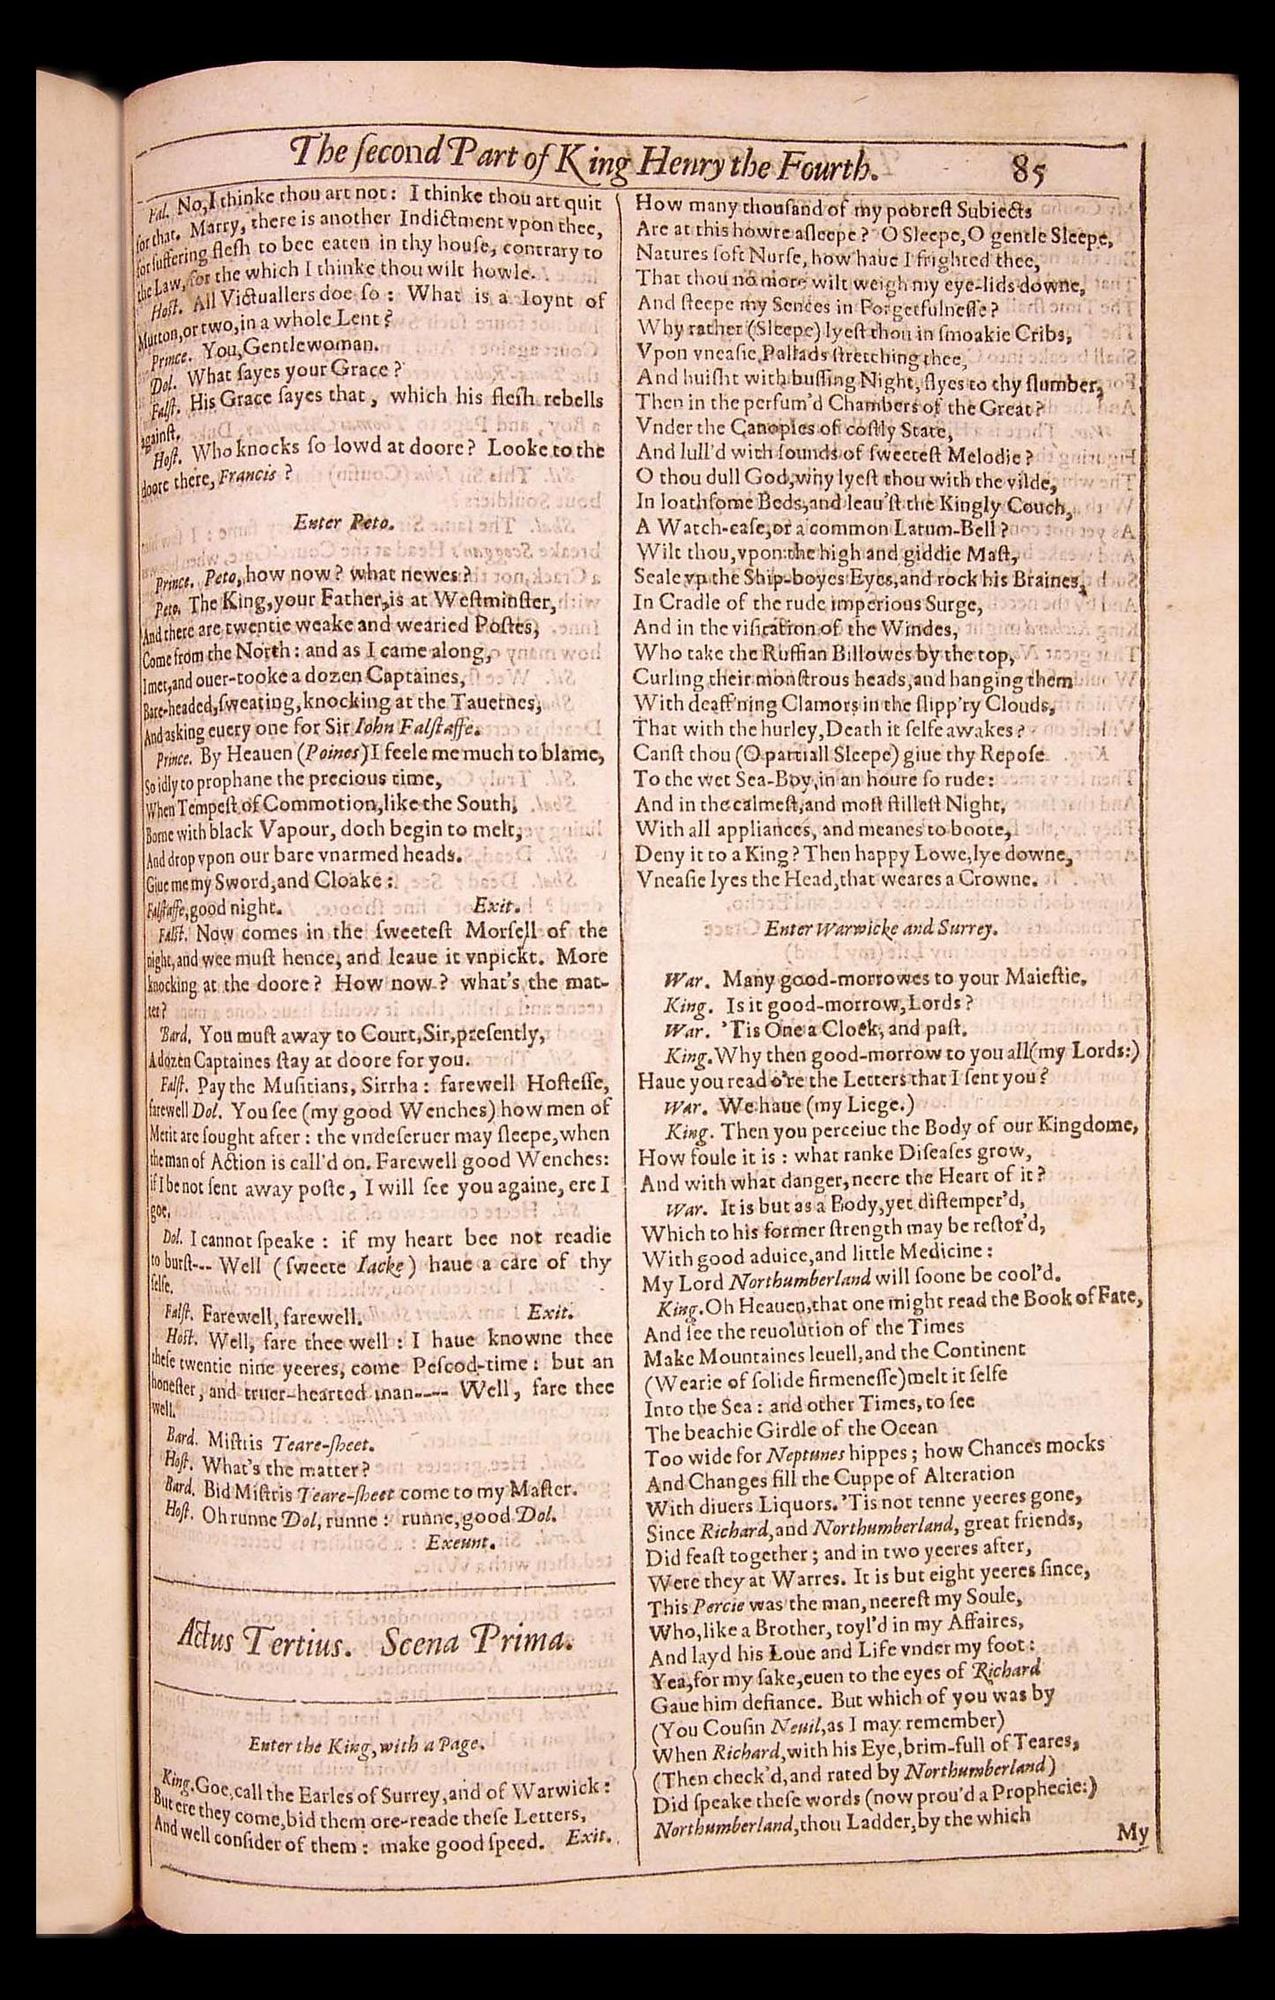 The ſecond Part of King Henry the Fourth. 85
Fal. No, I thinke thou art not: I thinke thou art quit
for that. Marry, there is another Indictment vpon thee,
for ſuffering fleſh to bee eaten in thy houſe, contrary to
the Law, for the which I thinke thou wilt howle.
Hoſt. All Victuallers doe ſo: What is a Ioynt of
Mutton, or two, in a whole Lent?
Prince. You, Gentlewoman.
Dol. What ſayes your Grace?
Falſt. His Grace ſayes that, which his fleſh rebells
againſt.
Hoſt. Who knocks ſo lowd at doore? Looke to the
doore there, Francis?
Enter Peto.
Prince. Peto, how now? what newes?
Peto. The King, your Father, is at Weſtminſter,
And there are twentie weake and wearied Poſtes,
Come from the North: and as I came along,
I met, and ouer-tooke a dozen Captaines,
Bare-headed, ſweating, knocking at the Tauernes,
And asking euery one for Sir Iohn Falſtaffe.
Prince. By Heauen (Poines) I feele me much to blame,
So idly to prophane the precious time,
When Tempeſt of Commotion, like the South,
Borne with black Vapour, doth begin to melt,
And drop vpon our bare vnarmed heads.
Giue me my Sword, and Cloake:
Falſtaffe, good night. Exit.
Falſt. Now comes in the ſweeteſt Morſell of the
night, and wee muſt hence, and leaue it vnpickt. More
knocking at the doore? How now? what's the mat-
ter?
Bard. You muſt away to Court, Sir, preſently,
A dozen Captaines ſtay at doore for you.
Falſt. Pay the Muſitians, Sirrha: farewell Hoſteſſe,
farewell Dol. You ſee (my good Wenches) how men of
Merit are ſought after: the vndeſeruer may ſleepe, when
the man of Action is call'd on. Farewell good Wenches:
if I be not ſent away poſte, I will ſee you againe, ere I
goe.
Dol. I cannot ſpeake: if my heart bee not readie
to burſt--- Well (ſweete Iacke) haue a care of thy
ſelfe.
Falſt. Farewell, farewell. Exit.
Hoſt. Well, fare thee well: I haue knowne thee
theſe twentie nine yeeres, come Peſcod-time: but an
honeſter, and truer-hearted man---- Well, fare thee
well.
Bard. Miſtris Teare-ſheet.
Hoſt. What's the matter?
Bard. Bid Miſtris Teare-ſheet come to my Maſter.
Hoſt. Oh runne Dol, runne: runne, good Dol.
Exeunt.
Actus Tertius. Scena Prima.
Enter the King, with a Page.
King. Goe, call the Earles of Surrey, and of Warwick:
But ere they come, bid them ore-reade theſe Letters,
And well conſider of them: make good ſpeed. Exit.
How many thouſand of my pooreſt Subiects
Are at this howre aſleepe? O Sleepe, O gentle Sleepe,
Natures ſoft Nurſe, how haue I frighted thee,
That thou no more wilt weigh my eye-lids downe,
And ſteepe my Sences in Forgetfulneſſe?
Why rather (Sleepe) lyeſt thou in ſmoakie Cribs,
Vpon vneaſie Pallads ſtretching thee,
And huiſht with buſſing Night, flyes to thy ſlumber,
Then in the perfum'd Chambers of the Great?
Vnder the Canopies of coſtly State,
And lull'd with ſounds of ſweeteſt Melodie?
O thou dull God, why lyeſt thou with the vilde,
In loathſome Beds, and leau'ſt the Kingly Couch,
A Watch-caſe, or a common Larum-Bell?
Wilt thou, vpon the high and giddie Maſt,
Seale vp the Ship-boyes Eyes, and rock his Braines,
In Cradle of the rude imperious Surge,
And in the viſitation of the Windes,
Who take the Ruffian Billowes by the top,
Curling their monſtrous heads, and hanging them
With deaff'ning Clamors in the ſlipp'ry Clouds,
That with the hurley, Death it ſelfe awakes?
Canſt thou (O partiall Sleepe) giue thy Repoſe
To the wet Sea-Boy, in an houre ſo rude:
And in the calmeſt, and moſt ſtilleſt Night,
With all appliances, and meanes to boote,
Deny it to a King? Then happy Lowe, lye downe,
Vneaſie lyes the Head, that weares a Crowne.
Enter Warwicke and Surrey.
War. Many good-morrowes to your Maieſtie.
King. Is it good-morrow, Lords?
War. 'Tis One a Clock, and paſt.
King. Why then good-morrow to you all (my Lords:)
Haue you read o're the Letters that I ſent you?
War. We haue (my Liege.)
King. Then you perceiue the Body of our Kingdome,
How foule it is: what ranke Diſeaſes grow,
And with what danger, neere the Heart of it?
War. It is but as a Body, yet diſtemper'd,
Which to his former ſtrength may be reſtor'd,
With good aduice, and little Medicine:
My Lord Northumberland will ſoone be cool'd.
King. Oh Heauen, that one might read the Book of Fate,
And ſee the reuolution of the Times
Make Mountaines leuell, and the Continent
(Wearie of ſolide firmeneſſe) melt it ſelfe
Into the Sea: and other Times, to ſee
The beachie Girdle of the Ocean
Too wide for Neptunes hippes; how Chances mocks
And Changes fill the Cuppe of Alteration
With diuers Liquors. 'Tis not tenne yeeres gone,
Since Richard, and Northumberland, great friends,
Did feaſt together; and in two yeeres after,
Were they at Warres. It is but eight yeeres ſince,
This Percie was the man, neereſt my Soule,
Who, like a Brother, toyl'd in my Affaires,
And layd his Loue and Life vnder my foot:
Yea, for my ſake, euen to the eyes of Richard
Gaue him defiance. But which of you was by
(You Couſin Neuil, as I may remember)
When Richard, with his Eye, brim-full of Teares,
(Then check'd, and rated by Northumberland)
Did ſpeake theſe words (now prou'd a Prophecie:)
Northumberland, thou Ladder, by the which
My